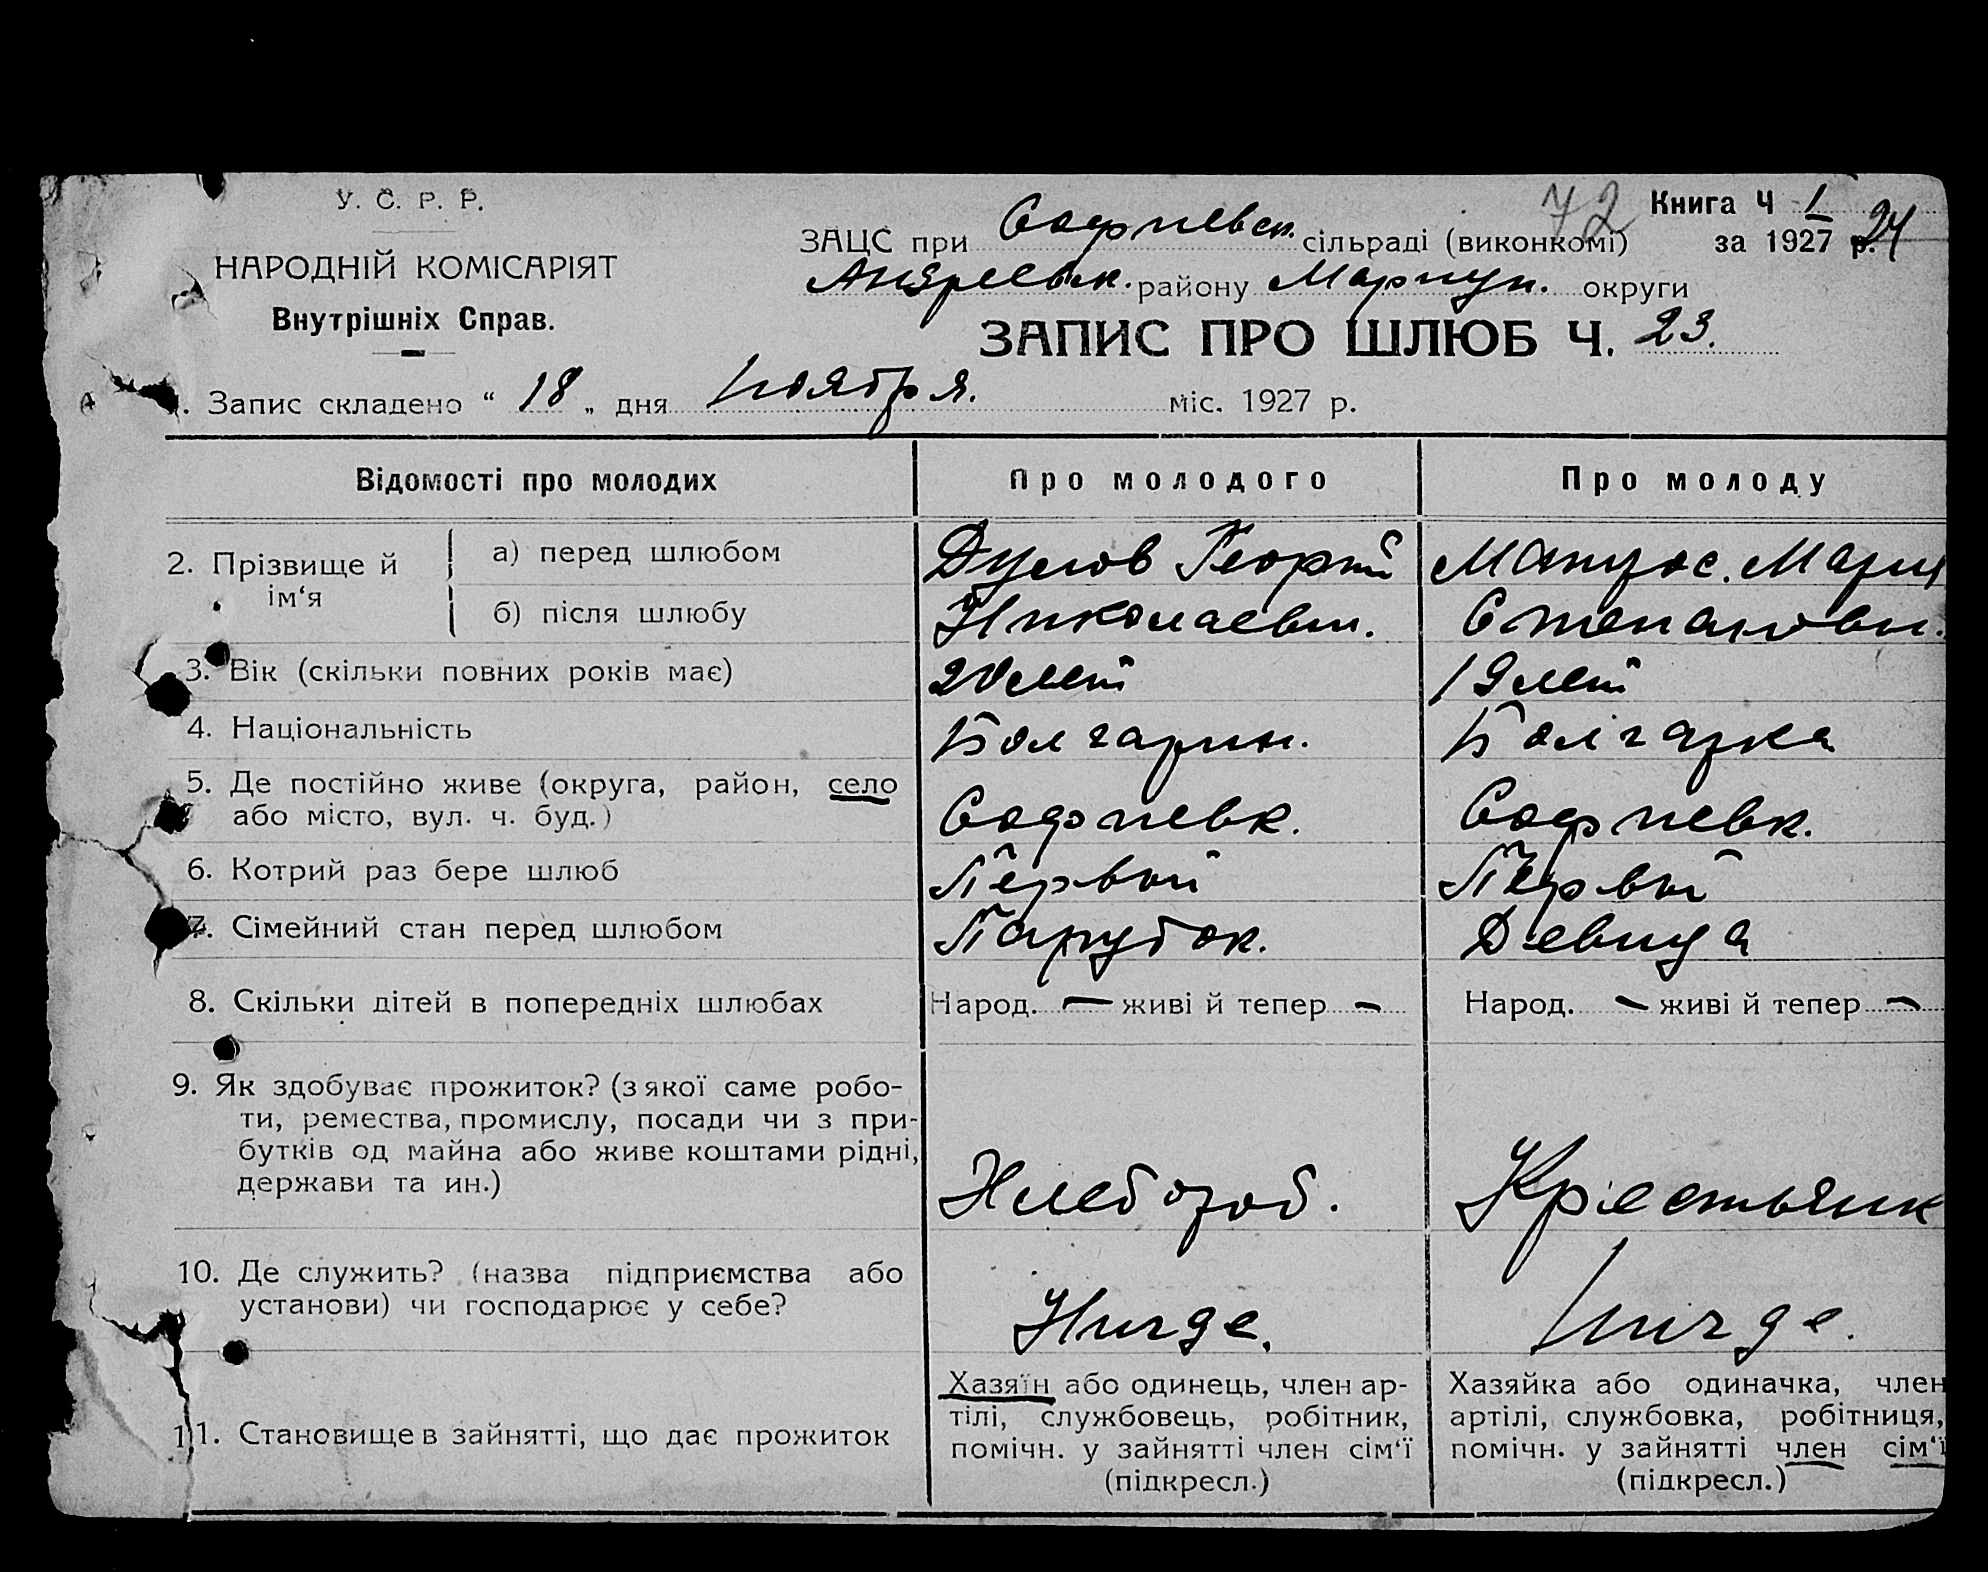 У. С. Р. Р.
НАРОДНІЙ КОМІСАРІЯТ
Внутрішніх Справ.
72 Книга Ч 1
ЗАЦС при Софиевск. сільраді (виконкомі) за 1927 р.
Андреевск. району Мариуп. округи
ЗАПИС ПРО ШЛЮБ Ч. 23.
1. Запис складено “ 18 „ дня Ноября. міс. 1927 р.
Відомості про молодих
Про молодого
Про молоду
2. Прізвище й ім‘я
а) перед шлюбом
б) після шлюбу
Дулов Георгий
Николаевич.
Мария
Степановн.
3. Вік (скільки повних років має)
20 лет
19 лет
4. Національність
Болгарин.
Болгарка
5. Де постійно живе (округа, район, село
або місто, вул. ч. буд.)
Софиевк.
Софиевк.
6. Котрий раз бере шлюб
Первой
Первой
7. Сімейний стан перед шлюбом
Парубок.
Девица
8. Скільки дітей в попередніх шлюбах
Народ. — живі й тепер —
Народ. — живі й тепер —
9. Як здобуває прожиток? (з якої саме робо-
ти, ремества, промислу, посади чи з при-
бутків од майна або живе коштами рідні,
держави та ин.)
Хлебороб.
Крестьянк
10. Де служить? (назва підприємства або
установи) чи господарює у себе?
Нигде.
Нигде.
11. Становище в зайнятті, що дає прожиток
Хазяїн або одинець, член ар-
тілі, службовець, робітник,
помічн. у зайнятті член сім‘ї
(підкресл.)
Хазяйка або одиначка, член
артілі, службовка, робітниця,
помічн. у зайнятті член сім‘ї
(підкресл.)